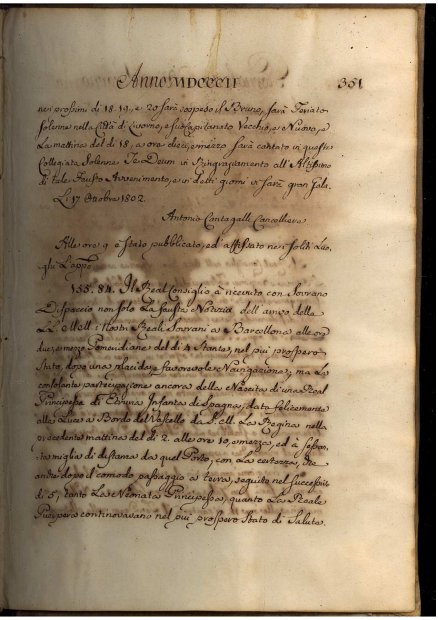 Anno MDCCCII 351
nei prossimi dì 18. 19. e 20 sarà sospeso il Bruno, sarà Feriato
Solenne nella Città di Livorno, e suo Capitanato Vecchio, e Nuovo, e
La mattina del dì 18, a ore dieci, e mezzo sarà cantato in questa
Collegiata Solenne Te Deum in Ringraziamento all'Altissimo
di tale Fausto Avvenimento, e in detti giorni vi sarà gran Gala.
Li 17 Ottobre 1802.
Antonio Contagalli Cancelliere
Alle ore 9 è stato pubblicato, ed affissato nei soliti Luo-
ghi L'appo
155. 84. Il Real Consiglio à ricevuto con Sovrano
Dispaccio non solo La fausta Notizia dell'arrivo della
LL. MM: i Nostri Reali Sovrani a Barcellona alle ore
due, e mezzo Pomeridiane del dì 4 Stante, nel più prospero
Stato, dopo una placida, e favorevole Navigazione; ma La
consolante partecipazione ancora della Nascita di una Real
Principessa di Etruria Infanta di Spagna, data felicemente
alla Luce a Bordo del Vascello da S. M. La Regina nella
precedente mattina del dì 2. alle ore 10, e mezza, ed à
miglia di distanza da quel Porto; con La certezza, che
anche dopo il comodo passaggio a terra, seguito nel successivo
dì 5, tanto La Neonata Principessa, quanto La Reale
Puerpera continovavano nel più prospero Stato di Salute.